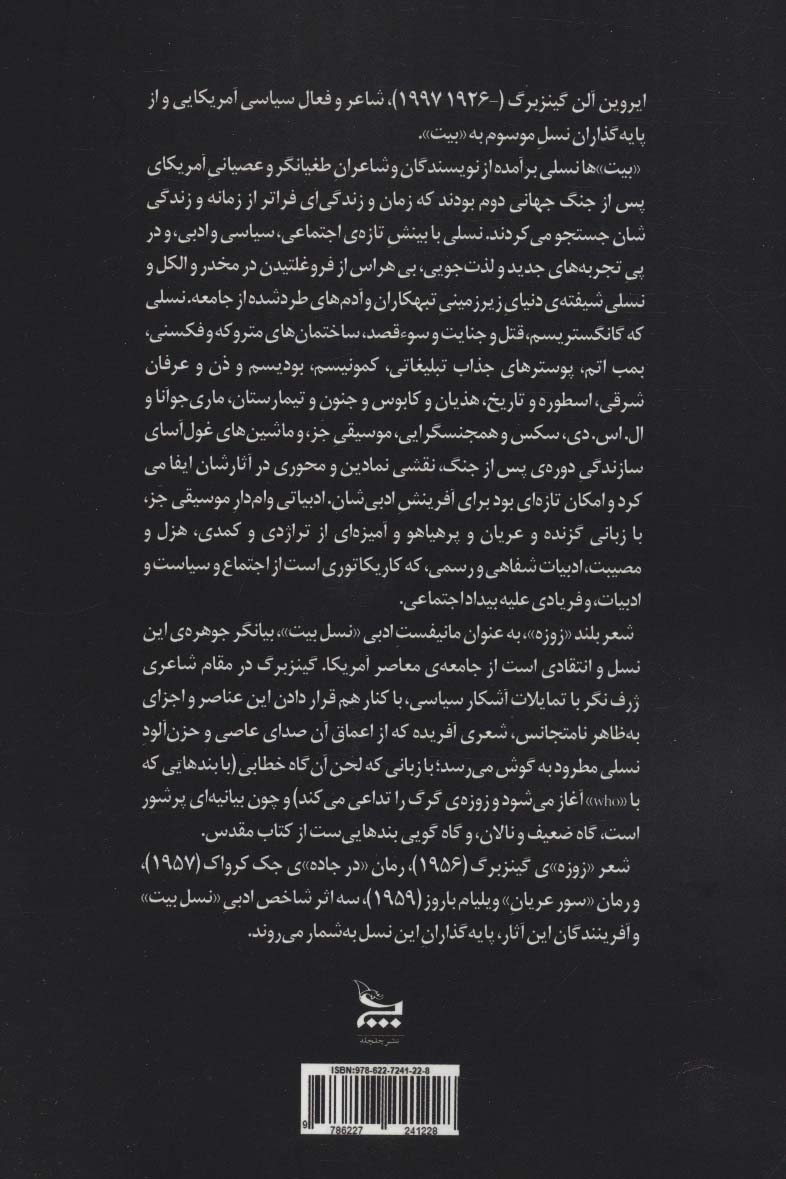 ایروین آلن گینزبرگ (-۱۹۲۶ ۱۹۹۷)، شاعر و فعال سیاسی آمریکایی و از
پایه‌گذاران نسلِ موسوم به «بیت».
«بیت»ها نسلی برآمده از نویسندگان و شاعران طغیانگر و عصیانی آمریکای
پس از جنگ جهانی دوم بودند که زمان و زندگی‌ای فراتر از زمانه و زندگی
شان جستجو می‌کردند. نسلی با بینشِ تازه‌ی اجتماعی، سیاسی و ادبی، و در
پی تجربه‌های جدید و لذت‌جویی، بی هراس از فروغلتیدن در مخدر و الکل و
نسلی شیفته‌ی دنیای زیرزمینیِ تبهکاران و آدم‌های طردشده از جامعه. نسلی
که گانگستریسم، قتل و جنایت و سوءقصد، ساختمان‌های متروکه و فکسنی،
بمب اتم، پوسترهای جذاب تبلیغاتی، کمونیسم، بودیسم و ذن و عرفان
شرقی، اسطوره و تاریخ، هذیان و کابوس و جنون و تیمارستان، ماری‌جوآنا و
ال.اس.دی، سکس و همجنسگرایی، موسیقیِ جَز، و ماشین‌های غول‌آسای
سازندگیِ دوره‌ی پس از جنگ، نقشی نمادین و محوری در آثارشان ایفا می
کرد و امکان تازه‌ای بود برای آفرینشِ ادبی‌شان. ادبیاتی وام‌دارِ موسیقی جَز،
با زبانی گزنده و عریان و پرهیاهو و آمیزه‌ای از تراژدی و کمدی، هزل و
مصیبت، ادبیات شفاهی و رسمی، که کاریکاتوری است از اجتماع و سیاست و
ادبیات، و فریادی علیه بیداد اجتماعی.
شعر بلند «زوزه»، به عنوان مانیفستِ ادبی «نسل بیت»، بیانگر جوهره‌ی این
نسل و انتقادی است از جامعه‌ی معاصر آمریکا. گینزبرگ در مقام شاعری
ژرف نگر با تمایلات آشکار سیاسی، با کنار هم قرار دادن این عناصر و اجزای
به‌ظاهر نامتجانس، شعری آفریده که از اعماق آن صدای عاصی و حزن‌آلودِ
نسلی مطرود به گوش می‌رسد؛ با زبانی که لحن آن گاه خطابی (با بندهایی که
با «who» آغاز می‌شود و زوزه‌ی گرگ را تداعی می‌کند) و چون بیانیه‌ای پرشور
است، گاه ضعیف و نالان، و گاه گویی بندهایی‌ست از کتاب مقدس.
شعر «زوزه»ی گینزبرگ (۱۹۵۶)، رمان «در جاده»ی جک کرواک (۱۹۵۷)،
و رمان «سور عریانِ» ویلیام باروز (۱۹۵۹)، سه اثر شاخص ادبیِ «نسل بیت»
و آفرینندگان این آثار، پایه‌گذارانِ این نسل به‌شمار می‌روند.
نشر چلچله
ISBN:978-622-7241-22-8
9 786227 241228